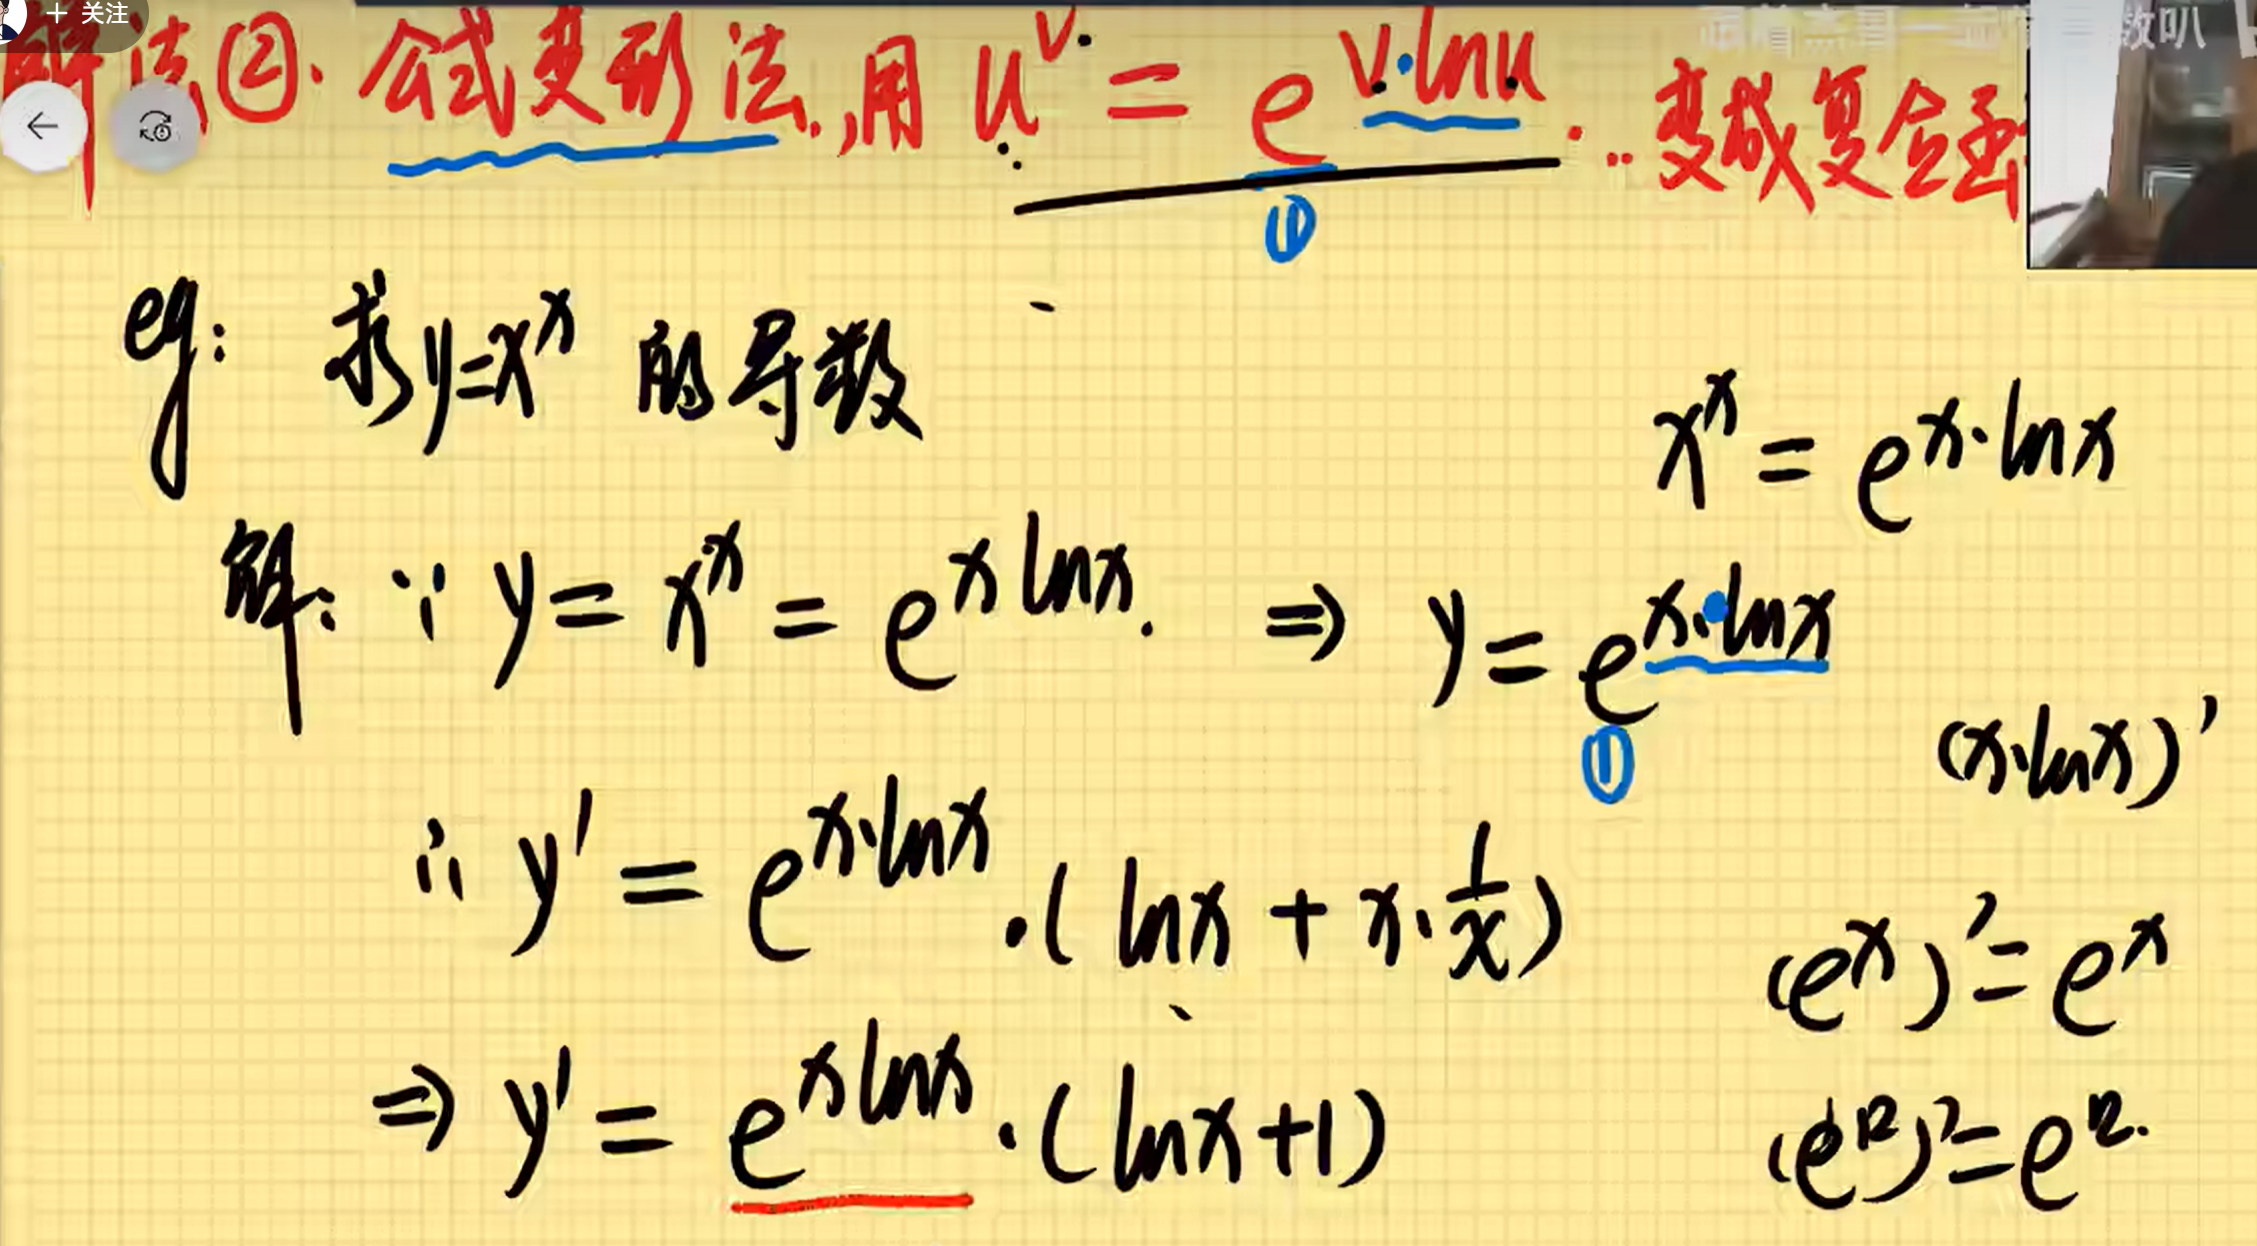 + 关注
解法②. 公式变形法, 用 u^v = e^{v·lnu} . .. 变成复合函
①
eg: 求y=x^x 的导数
x^x = e^{x·lnx}
解: ∵ y = x^x = e^{x lnx}. ⇒ y = e^{x·lnx}
①
(x·lnx)'
∴ y' = e^{x·lnx} ·( lnx + x·\frac{1}{x})
(e^x)' = e^x
⇒ y' = e^{x lnx} ·( lnx+1)